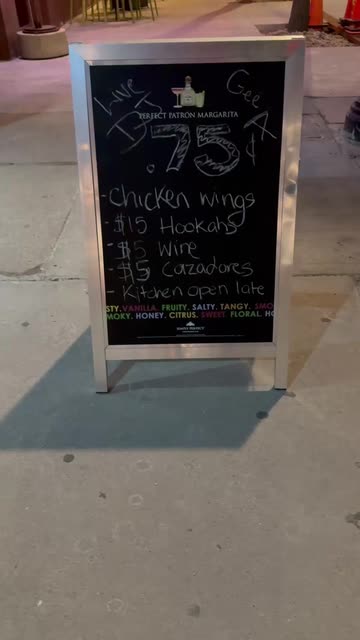 Live DJ
Gee A
PERFECT PATRÓN MARGARITA
.75¢
-chicken wings
-$15 Hookahs
-$5 Wine
-$5 Cazadores
-Kitchen open late
STY. VANILLA. FRUITY. SALTY. TANGY. SMO
MOKY. HONEY. CITRUS. SWEET. FLORAL. HO
SIMPLY PERFECT